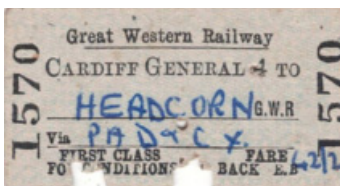 Great Western Railway
CARDIFF GENERAL 4 TO
HEADCORN G.W.R
Via PAD & CX.
FIRST CLASS FARE 42/2
FO CONDITIONS BACK
1570
1570